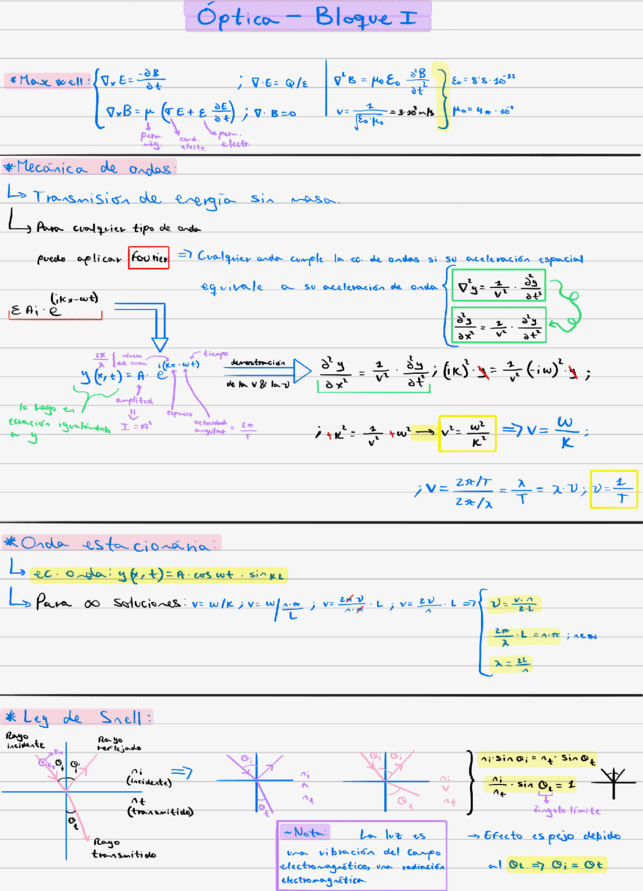 Óptica - Bloque I
*Maxwell: ∇×E = -∂B/∂t ; ∇·E = Q/ε
∇×B = μ (σE + ε ∂E/∂t) ; ∇·B = 0
∇²B = μ₀ε₀ ∂²B/∂t²
v = 1/√(ε₀·μ₀) = 3·10⁸ m/s
ε₀ = 8'8·10⁻¹²
perm. cond. electr. perm. electr.
*Mecánica de ondas:
↳ Transmisión de energía sin masa.
↳ Para cualquier tipo de onda
puedo aplicar Fourier ⇒ Cualquier onda cumple la ec. de ondas si su aceleración espacial
equivale a su aceleración de onda
∇²y = 1/v² · ∂²y/∂t²
∂²y/∂x² = 1/v² · ∂²y/∂t²
ΣAi · e^(ikx-wt)
2π/λ número de onda tiempo
y(x,t) = A · e^i(kx-wt) demostración de la v & la ν ∂²y/∂x² = 1/v² · ∂²y/∂t ; (ik)²·y = 1/v² (-iw)²·y ;
lo hago en ecuación igualándolo a y
amplitud
I = A²
espacio
velocidad angular = 2π/T
; +k² = 1/v² +w² → v² = w²/k² ⇒ v = w/k ;
; v = (2π/T)/(2π/λ) = λ/T = λ·ν ; ν = 1/T
*Onda estacionaria:
↳ ec. onda: y(x,t) = A · cos wt · sin kL
↳ Para ∞ soluciones: v = w/k ; v = w/(n·π/L) ; v = 2πν/(n·π) · L ; v = 2ν/n · L ⇒
ν = v·n/2·L
2π/λ · L = n·π ; n∈ℕ
λ = 2L/n
*Ley de Snell:
Rayo incidente
Rayo reflejado
θi θi
ni (incidente)
nt (transmitido)
θt
Rayo transmitido
⇒
θi ni nt θt
θi ni v nt θt
ni · sin θi = nt · sin θt
ni/nt · sin θL = 1
ángulo límite
~Nota: La luz es
una vibración del campo
electromagnético, una radiación
electromagnética.
→ Efecto espejo debido
al θL ⇒ θi = θt